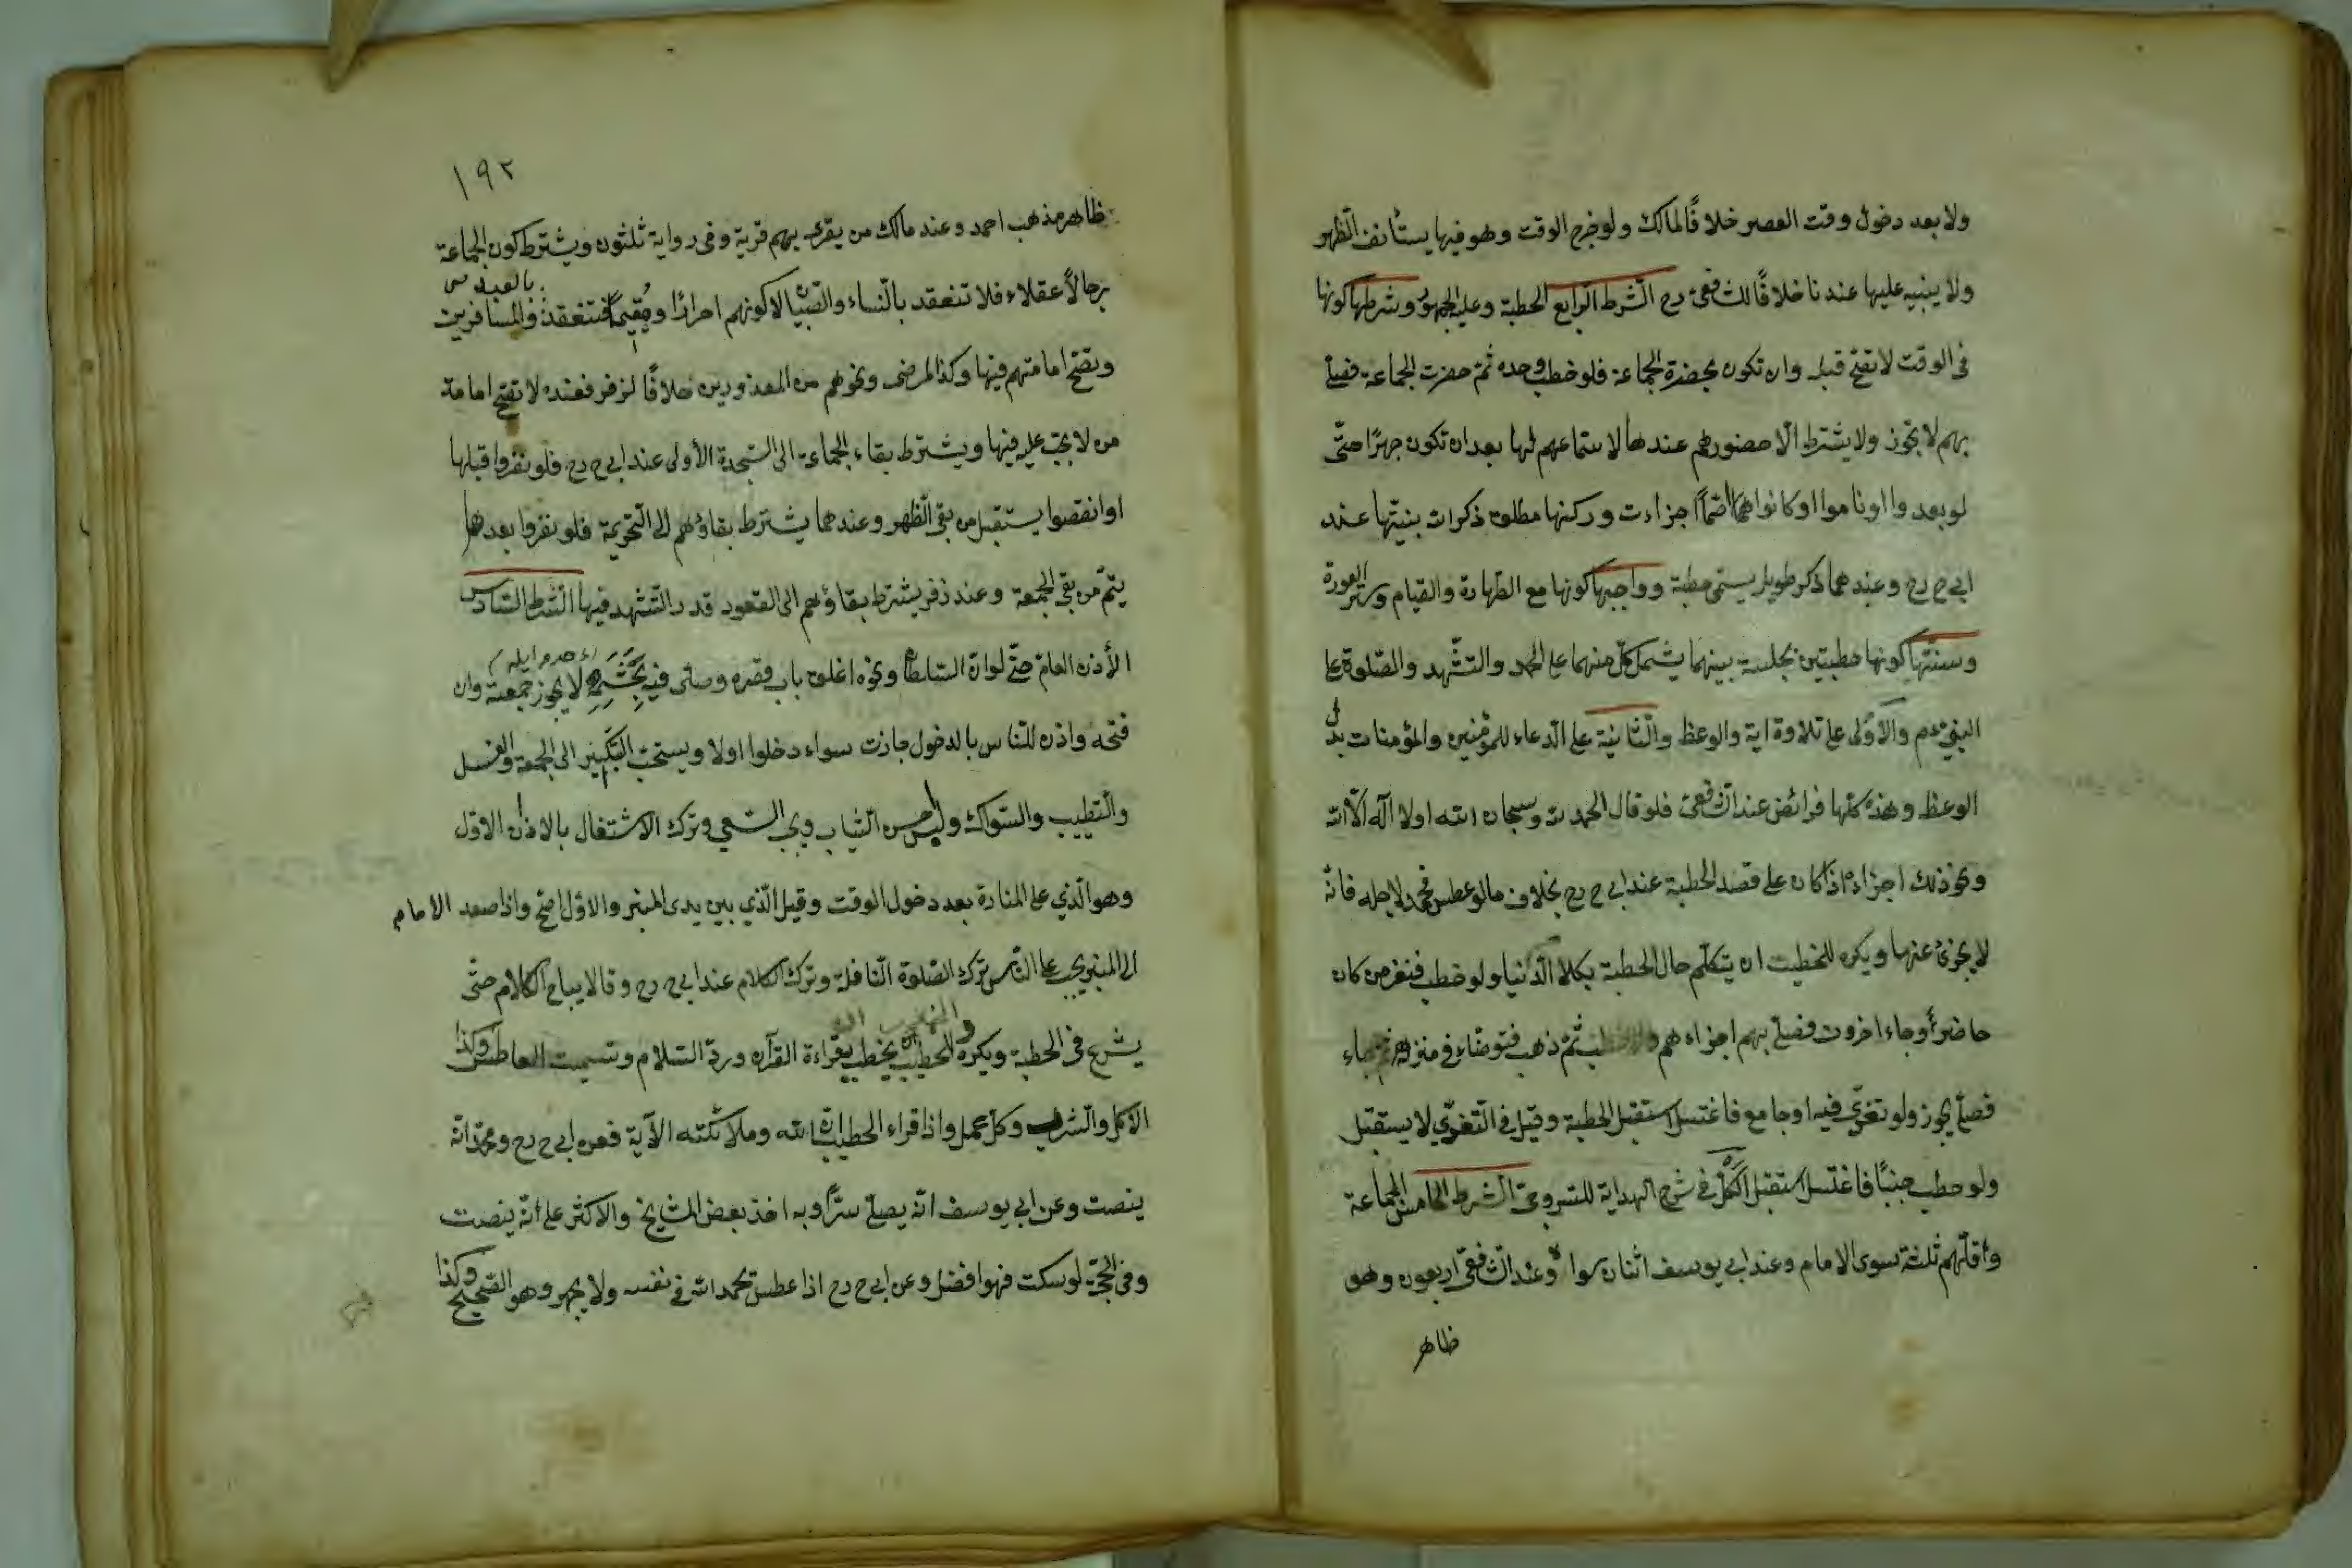 ولا بعد دخول وقت العصر خلافًا لمالك ولو خرج الوقت وهو فيها يستأنف الظهر
ولا يبنيه عليها عندنا خلافًا للشافعي رح الشرط الرابع الخطبة وعليه الجمهور وشرطها كونها
في الوقت لا تصح قبله وان تكون بحضرة الجماعة فلو خطب وحده ثم حضرت الجماعة فصلى
بهم لا يجوز ولا يشترط الا حضورهم عندها لا ستماعهم لها بعد ان تكون جهرًا حتى
لو بعدوا او ناموا او كانوا صمًا اجزاءت وركنها مطلق ذكر الله بنيتها عند
ابي ح رح وعندهما ذكر طويل يسمى خطبة وواجبها كونها مع الطهارة والقيام وستر العورة
وسنتها كونها خطبتين بجلسة بينهما يشتمل كل منهما على الحمد والتشهد والصلوة على
النبي عم والاولى على تلاوة اية والوعظ والثانية على الدعاء للمؤمنين والمؤمنات بدل
الوعظ وهذه كلها فرائض عند الشافعي فلو قال الحمد لله وسبحان الله او لا اله الا الله
ونحو ذلك اجزاءه اذا كان على قصد الخطبة عند ابي ح رح بخلاف ما لو عطس فحمد لاجله فانه
لا يجزئ عنها ويكره للخطيب ان يتكلم حال الخطبة بكلام الدنيا ولو خطب فنفر من كان
حاضرًا وجاء اخرون فصلى بهم اجزاءهم ولو خطب ثم ذهب فتوضاء في منزله ثم جاء
فصلى يجوز ولو تغدى فيه او جامع فاغتسل استقبل الخطبة وقيل في التغدي لا يستقبل
ولو خطب جنبًا فاغتسل استقبل الكل في شرح الهداية للسروجي الشرط الخامس الجماعة
واقلهم ثلثة سوى الامام وعند ابي يوسف اثنان سواه وعند الشافعي اربعون وهو
ظاهر
١٩٢
ظاهر مذهب احمد وعند مالك من يقرى بهم قرية وفي رواية ثلثون ويشترط كون الجماعة
رجالاً عقلاء فلا تنعقد بالنساء والصبيان لا كونهم احرارًا ومقيمين فتنعقد بالعبيد والمسافرين
وتصح امامتهم فيها وكذا المرضى ونحوهم من المعذورين خلافًا لزفر فعنده لا تصح امامة
من لا يجب عليه فيها ويشترط بقاء الجماعة الى السجدة الأولى عند ابي ح رح فلو نفروا قبلها
او انفضوا يستقبل من بقى الظهر وعندهما يشترط بقاؤهم الى التحريمة فلو نفروا بعدها
يتم من بقى الجمعة وعند زفر يشترط بقاؤهم الى القعود قدر التشهد فيها الشرط السادس
الأذن العام حتى لو ان السلطان ونحوه اغلق باب قصره وصلى فيه بحشمه لا يجوز جمعته وان
فتحه واذن للناس بالدخول جازت سواء دخلوا اولا ويستحب التبكير الى الجمعة والغسل
والتطيب والسواك ولبس احسن الثياب ويجب السعي وترك الاشتغال بالاذان الاول
وهو الذي على المنارة بعد دخول الوقت وقيل الذي بين يدى المنبر والاول اصح واذا صعد الامام
الى المنبر يجب على الناس ترك الصلوة النافلة وترك الكلام عند ابي ح رح وقالا يباح الكلام حتى
يشرع في الخطبة ويكره للخطيب ان يخطب بقراءة القرآن ورد السلام وتسميت العاطس وكذا
الاكل والشرب وكل عمل واذا قراء الخطيب ان الله وملائكته الآية فعن ابي ح رح ومحمد انه
ينصت وعن ابي يوسف انه يصلى سرًا وبه اخذ بعض المشايخ والاكثر على انه ينصت
وفي الحجة لو سكت فهو افضل وعن ابي ح رح اذا عطس يحمد الله في نفسه ولا يجهر وهو الصحيح وكذا